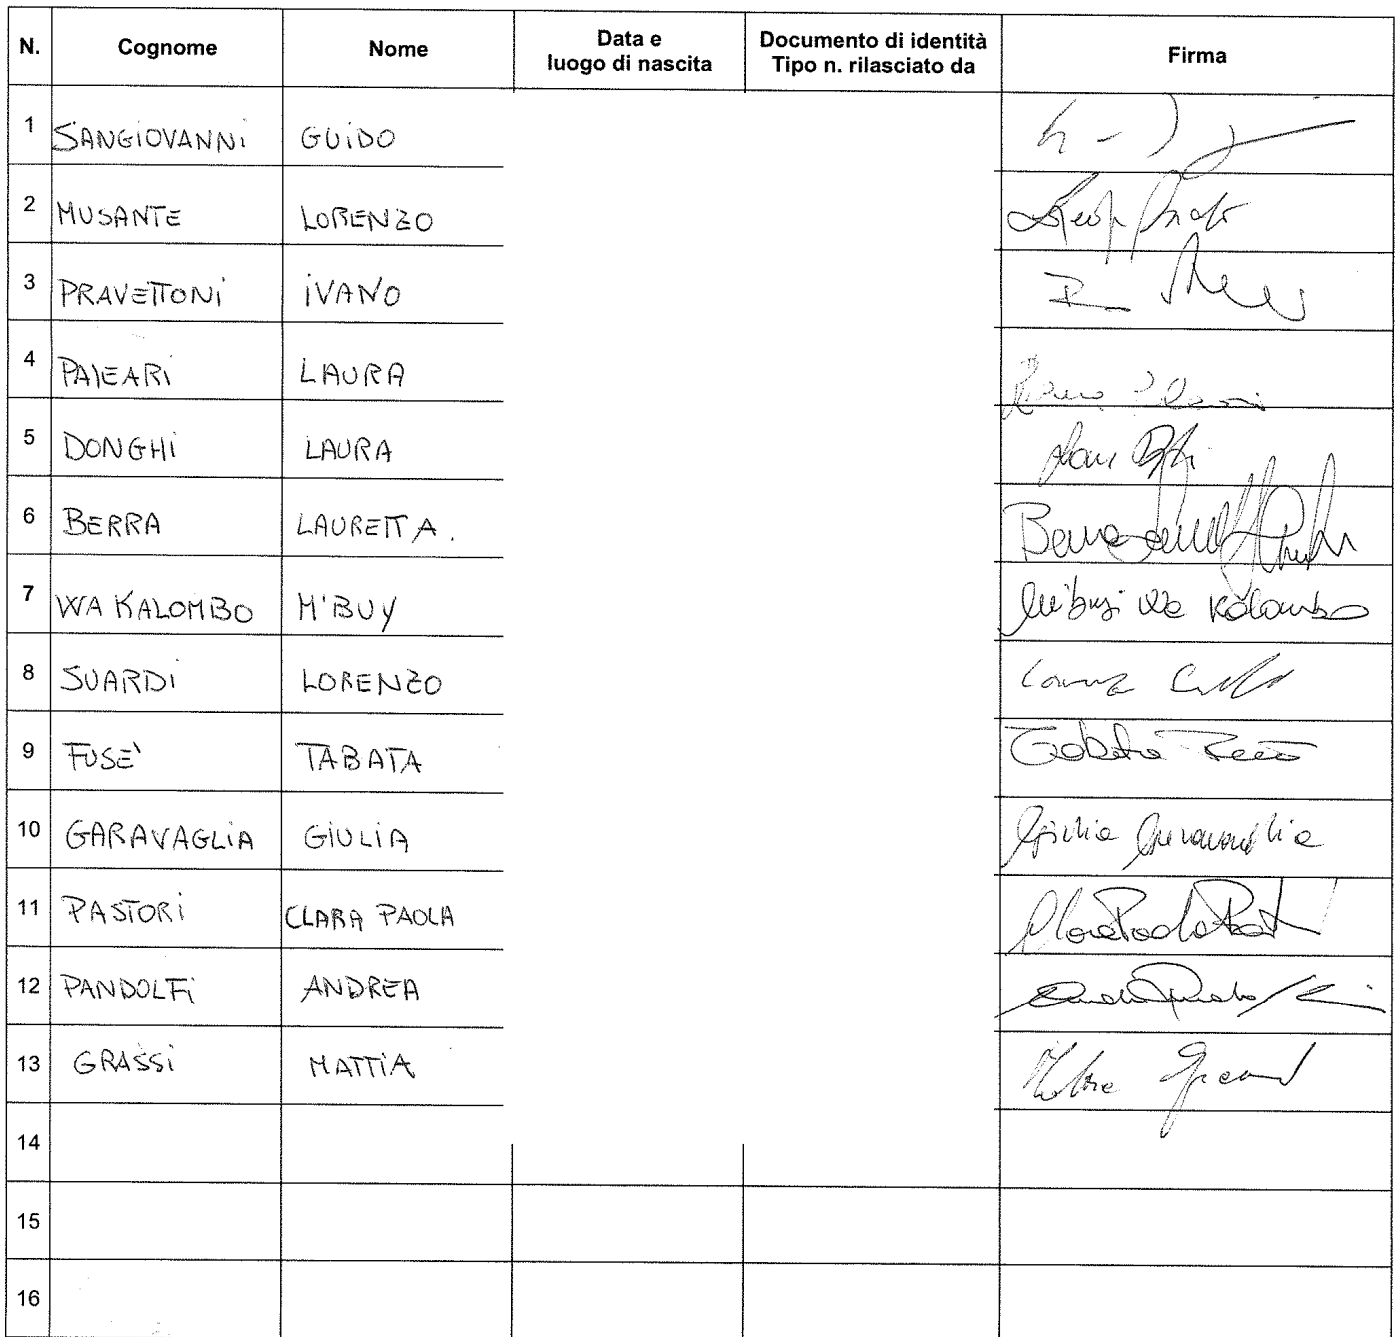 N. Cognome Nome Data e luogo di nascita Documento di identità Tipo n. rilasciato da Firma
1 SANGIOVANNI GUIDO
2 MUSANTE LORENZO
3 PRAVETTONI IVANO
4 PALEARI LAURA
5 DONGHI LAURA
6 BERRA LAURETTA.
7 WA KALOMBO M'BUY M'buyi Wa Kalombo
8 SUARDI LORENZO
9 FUSE' TABATA Tabata
10 GARAVAGLIA GIULIA Giulia Garavaglia
11 PASTORI CLARA PAOLA
12 PANDOLFI ANDREA
13 GRASSI MATTIA
14
15
16